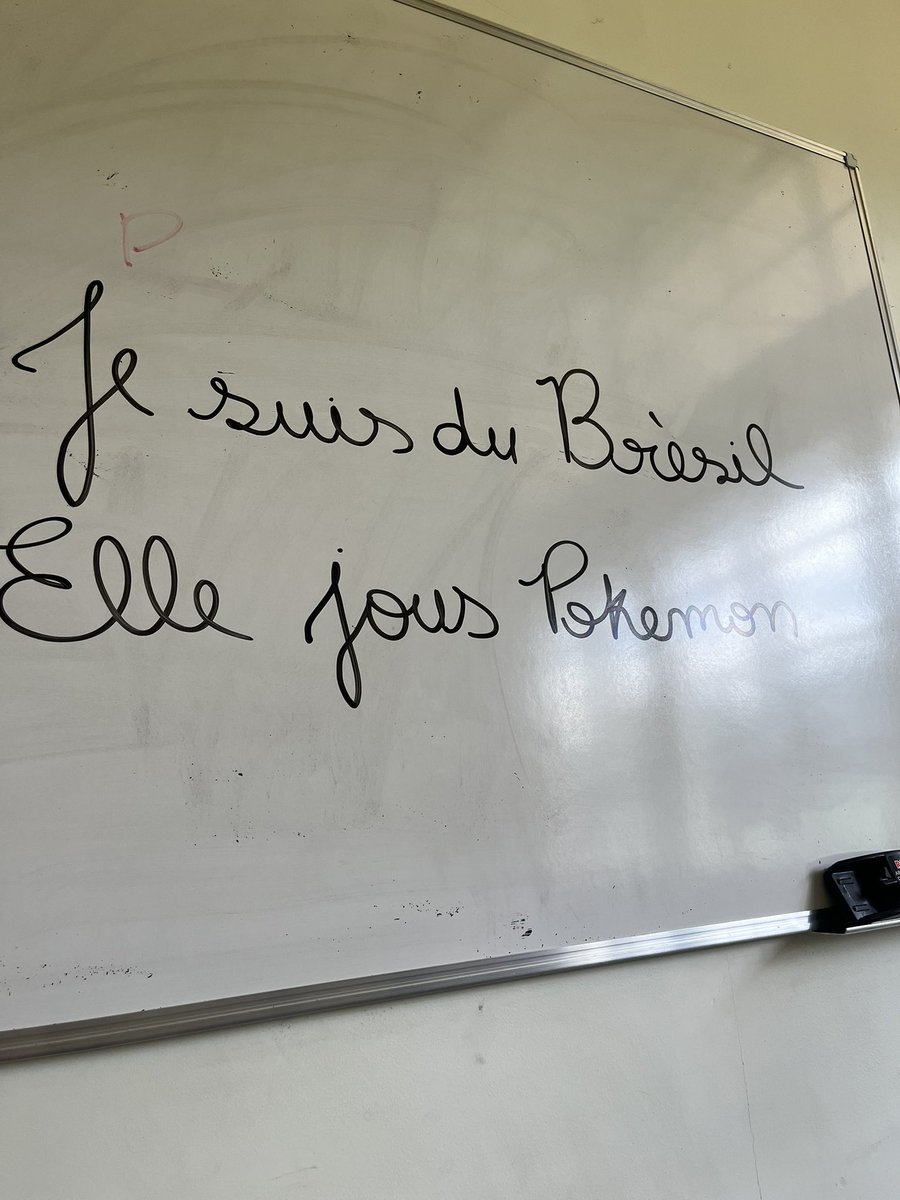 P
Je suis du Brèsil
Elle jous Pokemon